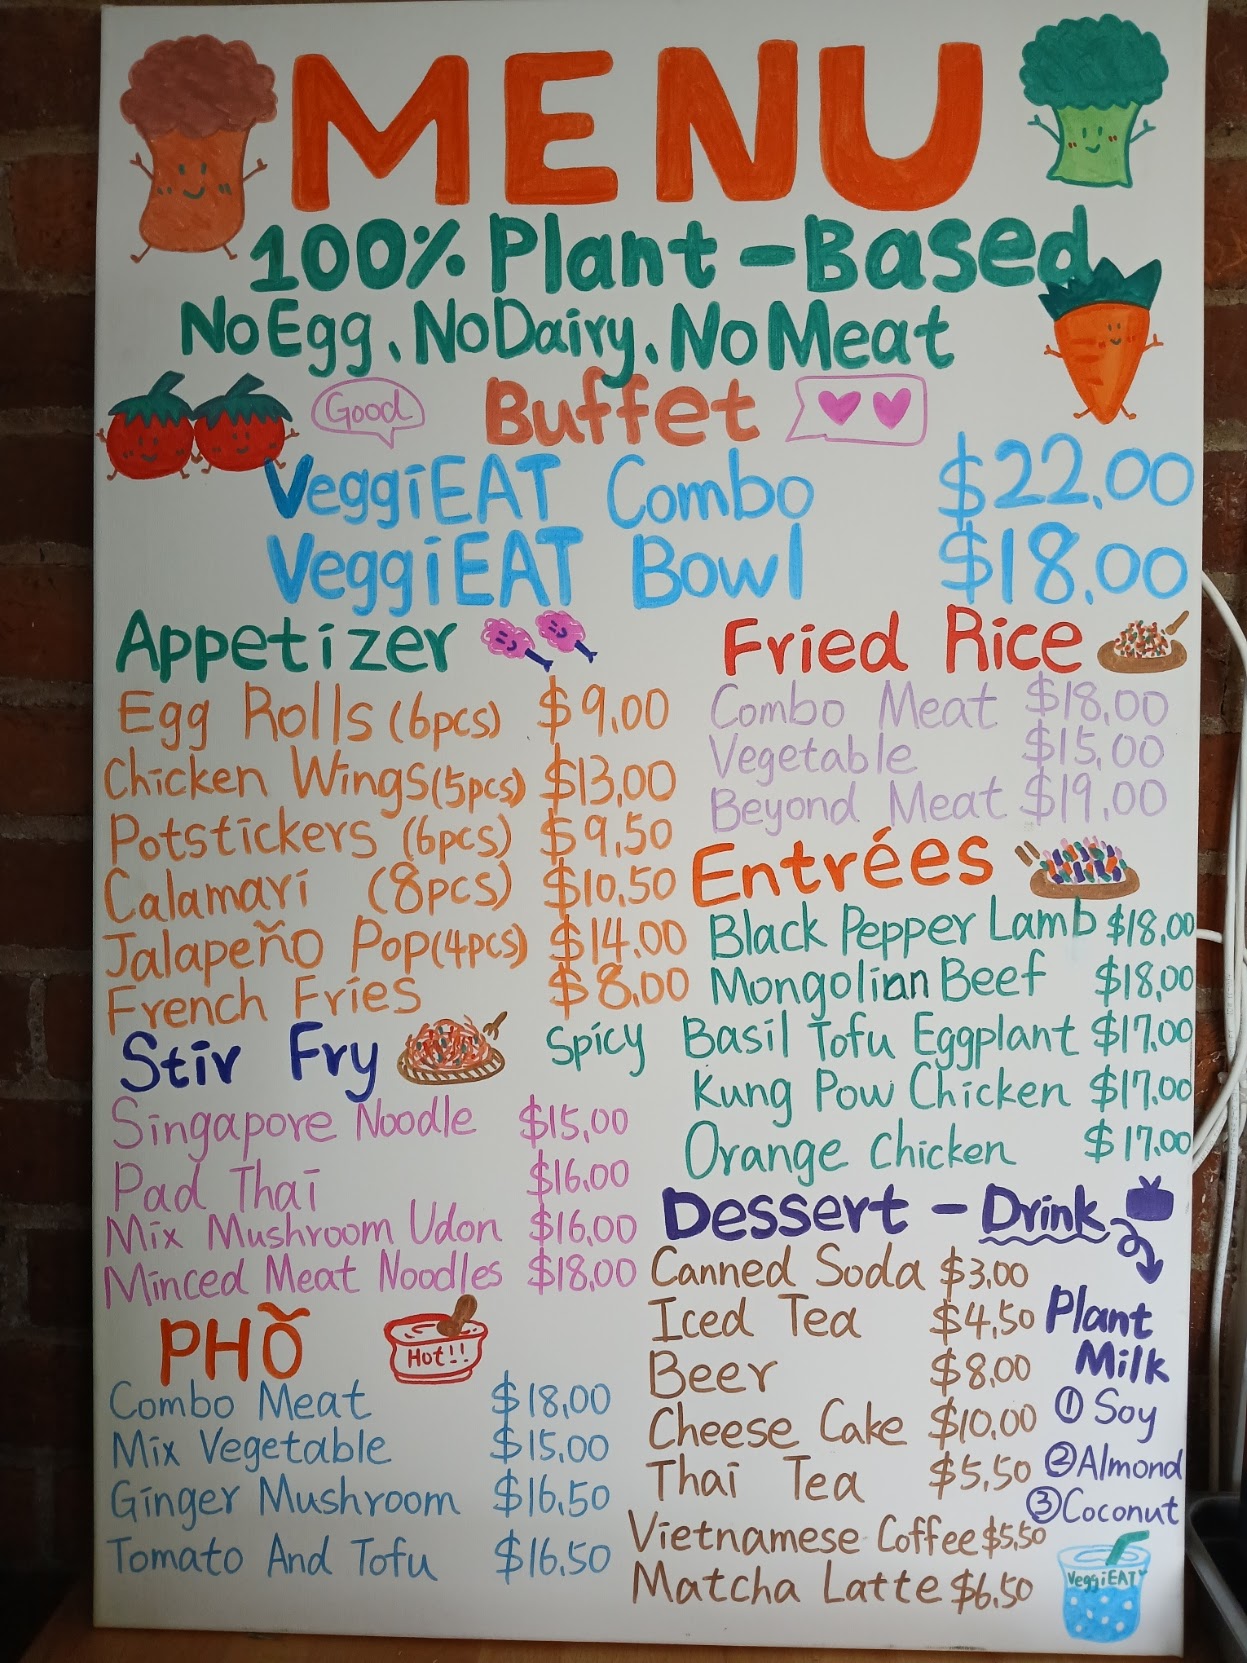 MENU
100% Plant-Based
No Egg, No Dairy, No Meat
Good
Buffet
VeggiEAT Combo $22.00
VeggiEAT Bowl $18.00
Appetizer
Egg Rolls (6pcs) $9.00
Chicken Wings (5pcs) $13.00
Potstickers (6pcs) $9.50
Calamari (8pcs) $10.50
Jalapeño Pop (4pcs) $14.00
French Fries $8.00
Stir Fry
Singapore Noodle $15.00
Pad Thai $16.00
Mix Mushroom Udon $16.00
Minced Meat Noodles $18.00
PHǑ
Hot!!
Combo Meat $18.00
Mix Vegetable $15.00
Ginger Mushroom $16.50
Tomato And Tofu $16.50
Fried Rice
Combo Meat $18.00
Vegetable $15.00
Beyond Meat $19.00
Entrées
Black Pepper Lamb $18.00
Mongolian Beef $18.00
Spicy Basil Tofu Eggplant $17.00
Kung Pow Chicken $17.00
Orange Chicken $17.00
Dessert - Drink
Canned Soda $3.00
Iced Tea $4.50
Beer $8.00
Cheese Cake $10.00
Thai Tea $5.50
Vietnamese Coffee $5.50
Matcha Latte $6.50
Plant
Milk
① Soy
② Almond
③ Coconut
VeggiEAT